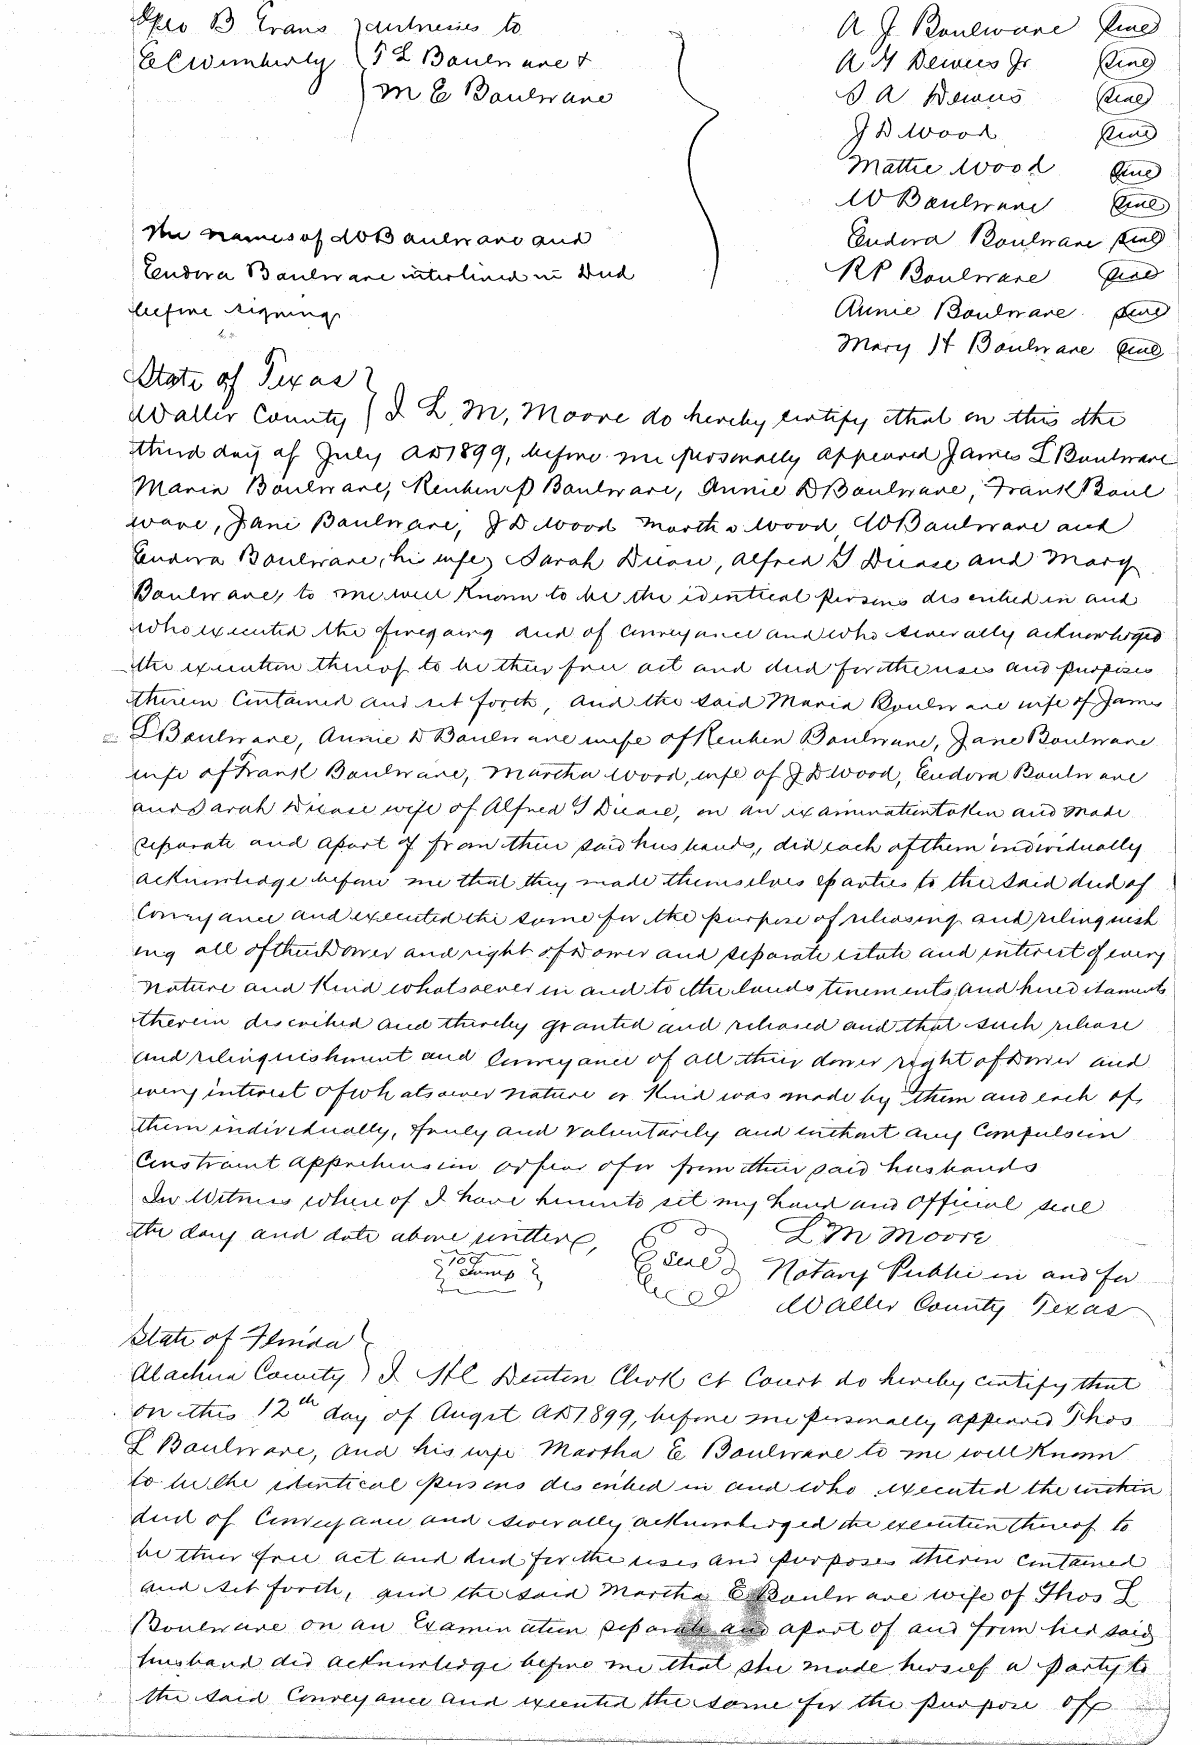 Geo B Evans } witnesses to
E C Wimberly } T L Boulware &
M E Boulware
A J Boulware seal
A G Dewees Jr seal
S A Dewees seal
J D Wood seal
Mattie Wood seal
W Boulware seal
Eudora Boulware seal
R P Boulware seal
Annie Boulware seal
Mary H Boulware seal
The names of W Boulware and
Eudora Boulware interlined in Deed
before signing
State of Texas }
Waller County } I L. M, Moore do hereby certify that on this the
third day of July AD 1899, before me personally appeared James L Boulware
Maria Boulware, Reuben P Boulware, Annie D Boulware, Frank Boul
ware, Jane Boulware, J D Wood Martha Wood, W Boulware and
Eudora Boulware, his wife, Sarah Dicase, Alfred G Dicase and Mary
Boulware, to me well Known to be the identical persons described in and
who executed the foregoing deed of Conveyance and who severally acknowledged
the execution thereof to be their free act and deed for the uses and purposes
therein Contained and set forth, and the said Maria Boulware wife of James
L Boulware, Annie D Boulware wife of Reuben Boulware, Jane Boulware
wife of Frank Boulware, Martha Wood, wife of J D Wood, Eudora Boulware
and Sarah Dicase wife of Alfred G Dicase, on an examination taken and made
separate and apart of from their said husbands, did each of them individually
acknowledge before me that they made themselves parties to the said deed of
Conveyance and executed the same for the purpose of releasing and relinquish
ing all of their Dower and right of Dower and separate estate and interest of every
nature and Kind whatsoever in and to the lands tenements, and hereditaments
therein described and thereby granted and released and that such release
and relinquishment and Conveyance of all their dower right of Dower and
every interest of whatsoever nature or Kind was made by them and each of
them individually, freely and voluntarily and without any Compulsion
Constraint apprehension or fear of or from their said husbands
In Witness where of I have hereunto set my hand and official seal
the day and date above written,
L M Moore
Seal
Notary Public in and for
Waller County Texas
State of Florida }
Alachua County } I H C Denton Clerk ct Court do hereby certify that
on this 12th day of Augst AD 1899, before me personally appeared Thos
L Boulware, and his wife Martha E Boulware to me well Known
to be the identical persons described in and who executed the within
deed of Conveyance and severally acknowledged the execution thereof to
be their free act and deed for the uses and purposes therein contained
and set forth, and the said Martha E Boulware wife of Thos L
Boulware on an Examination separate and apart of and from her said
husband did acknowledge before me that she made herself a party to
the said Conveyance and executed the same for the purpose of